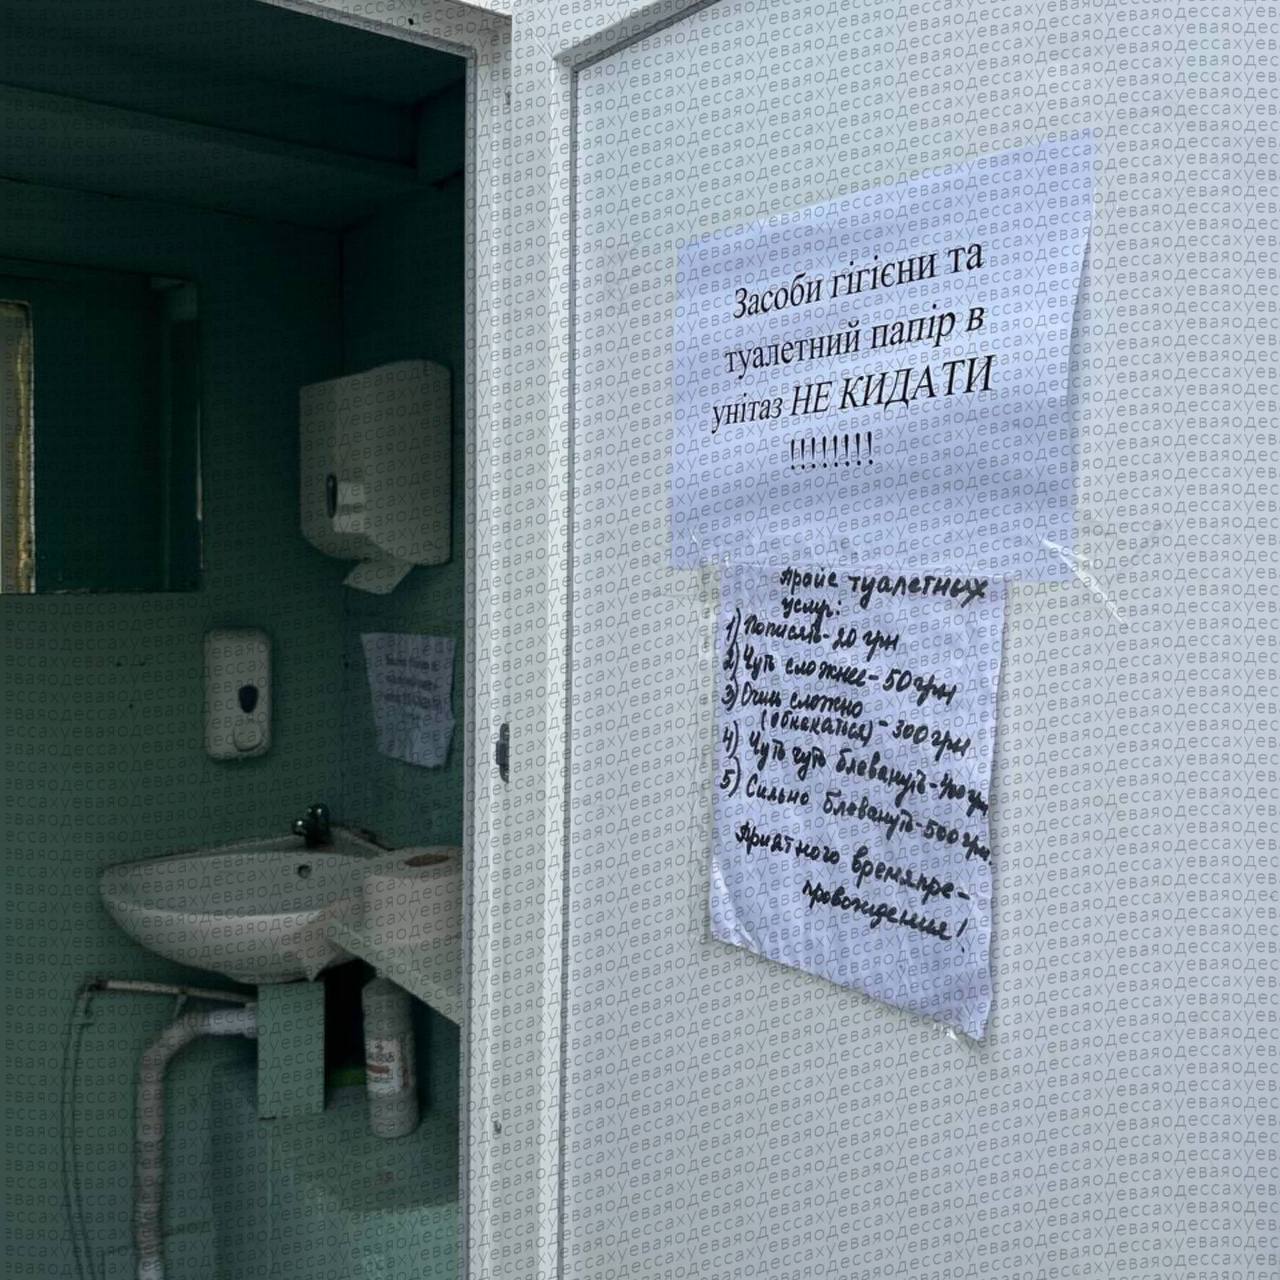 Засоби гігієни та
туалетний папір в
унітаз НЕ КИДАТИ
!!!!!!!!
Прайс туалетных
услуг:
1) Пописять - 20 грн
2) Чуть сложнее - 50 грн
3) Очень сложно
(обкакаться) - 300 грн
4) Чуть чуть блевануть - 400 грн
5) Сильно блевануть - 500 грн.
Приятного времяпре-
провождения!